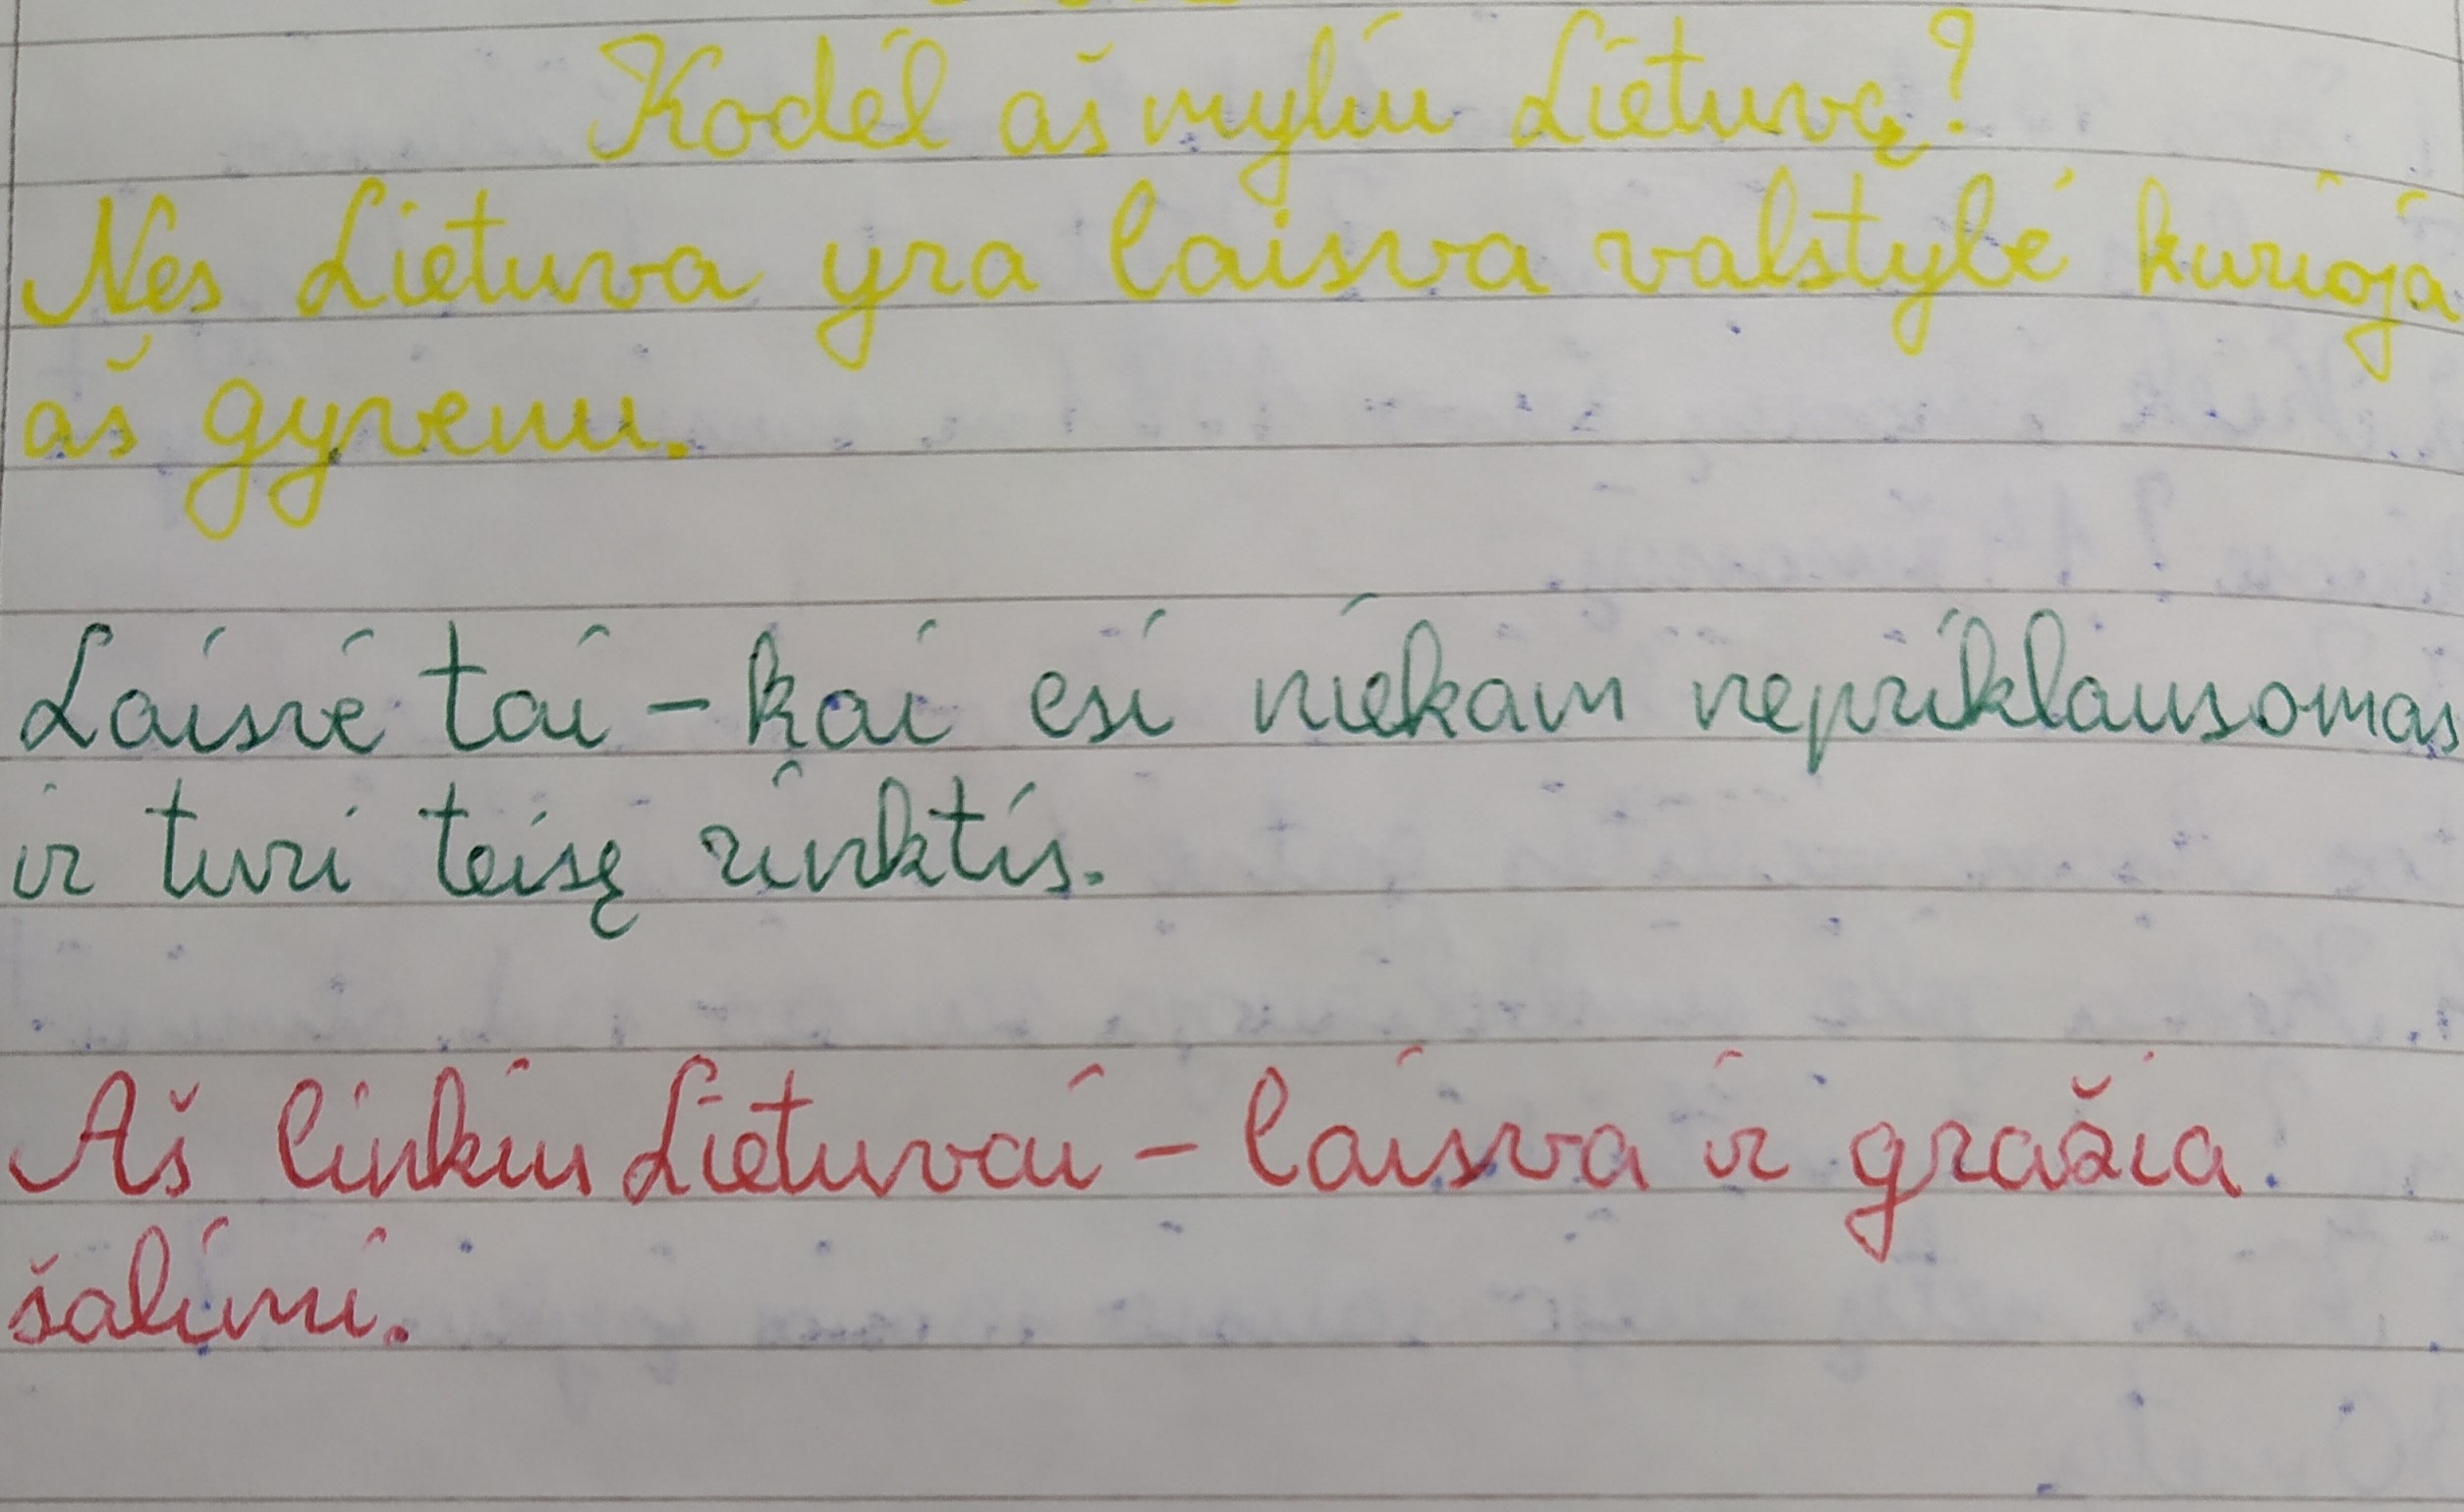 Kodėl aš myliu Lietuvą?
Nes Lietuva yra laisva valstybė kurioja
aš gyvenu.
Laisvė tai - kai esi niekam nepriklausomas
ir turi teisę rinktis.
Aš linkiu Lietuvai - laisva ir gražia
šalimi.